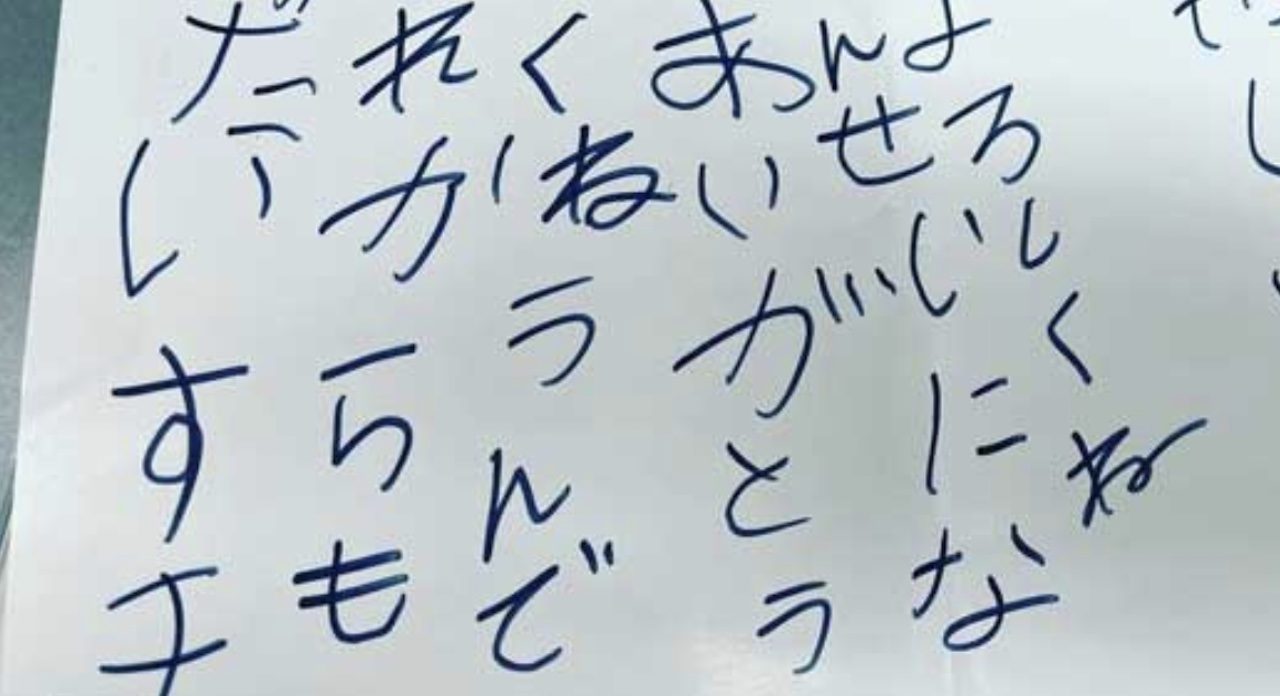 よろしくね
んせじにな
あいがとう
くねうんで
れからも
だいすき